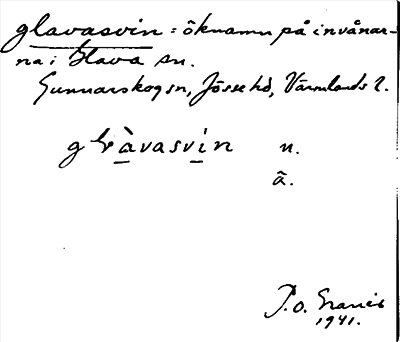 glavasvin = öknamn på invånar-
na i Glava sn.
Gunnarskog sn, Jösse hd, Värmlands l.
glàvasvin n.
ã.
P.o.
1941.